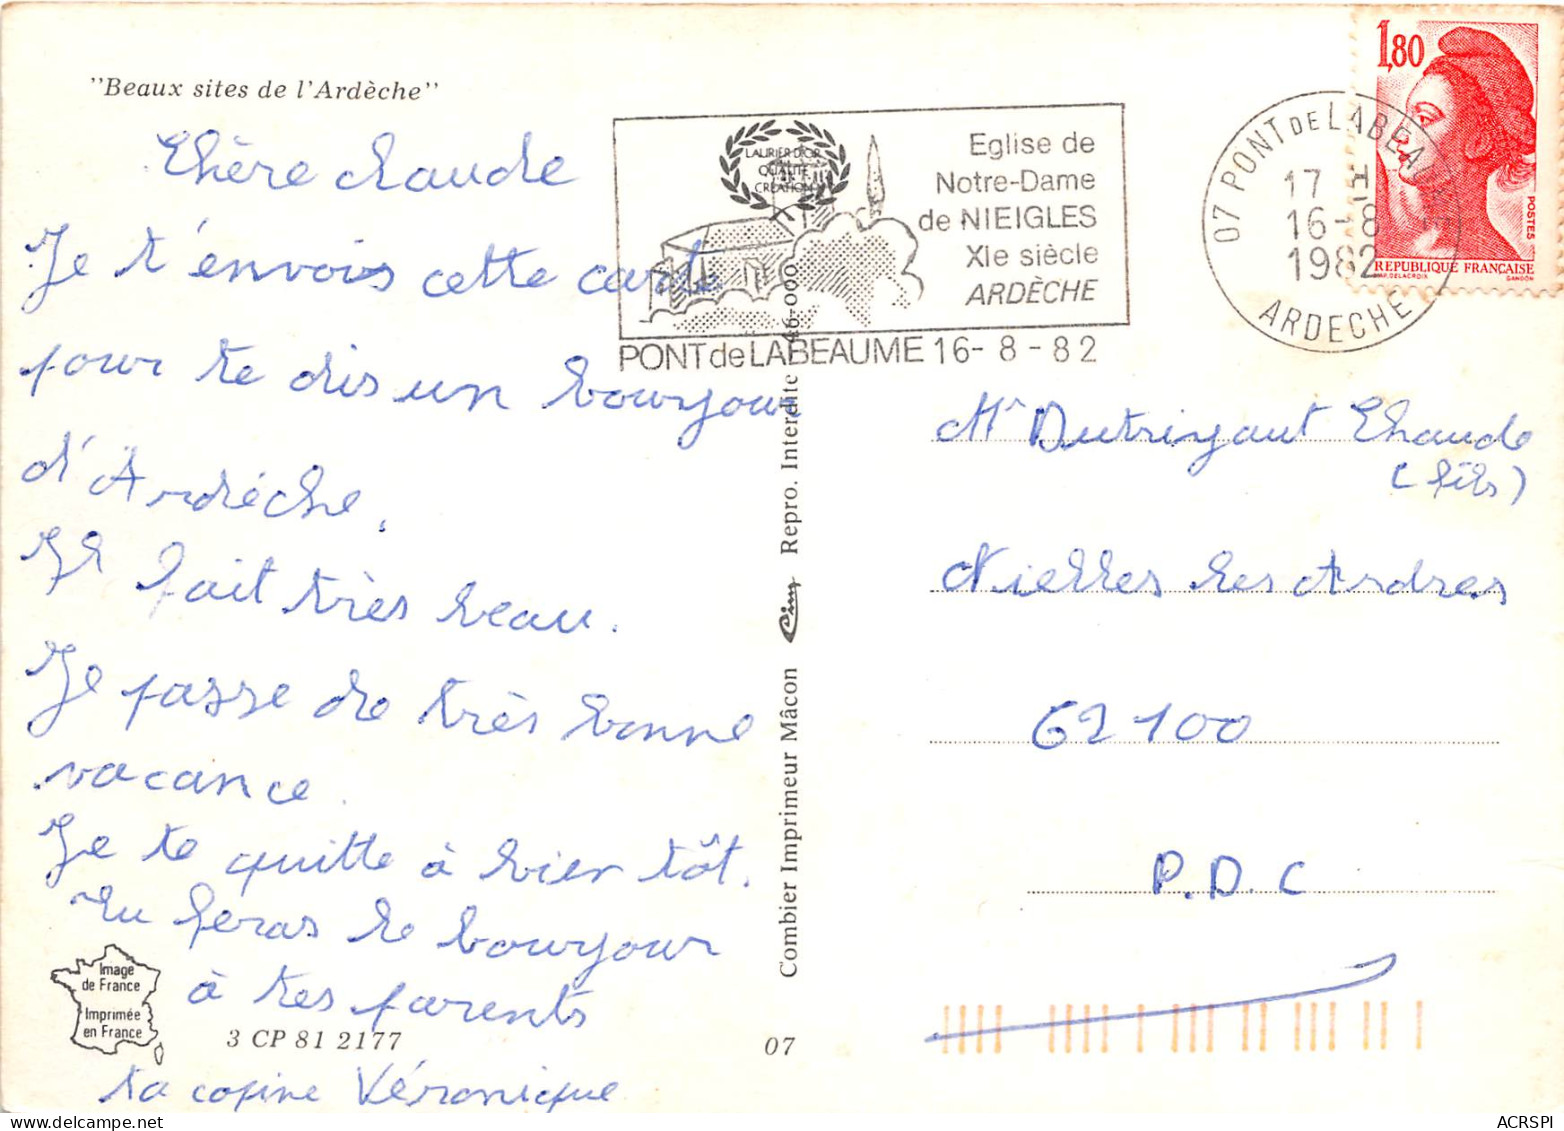 "Beaux sites de l'Ardèche"
Chère Claude
Je t'envois cette carte
pour te dis un bonjour
d'Ardéche.
Il fait très beau.
Je passe de très bonne
vacance.
Je te quitte à bien tôt.
Tu feras le bonjour
à tes parents
ta copine Véronique
Image
de France
Imprimée
en France
3 CP 81 2177
07
Combier Imprimeur Mâcon Cim Repro. Interdite 46-000
LAURIER D'OR
QUALITÉ
CRÉATION
Eglise de
Notre-Dame
de NIEIGLES
XIe siècle
ARDÈCHE
PONT de LABEAUME 16-8-82
07 PONT DE LABEAUME
17 H
16-8
1982
ARDECHE
1,80
POSTES
REPUBLIQUE FRANÇAISE
AP. DELACROIX
GANDON
Mr Dutriyaut Claude
(fils)
Nielles les Ardres
62100
P.D.C
ACRSPI